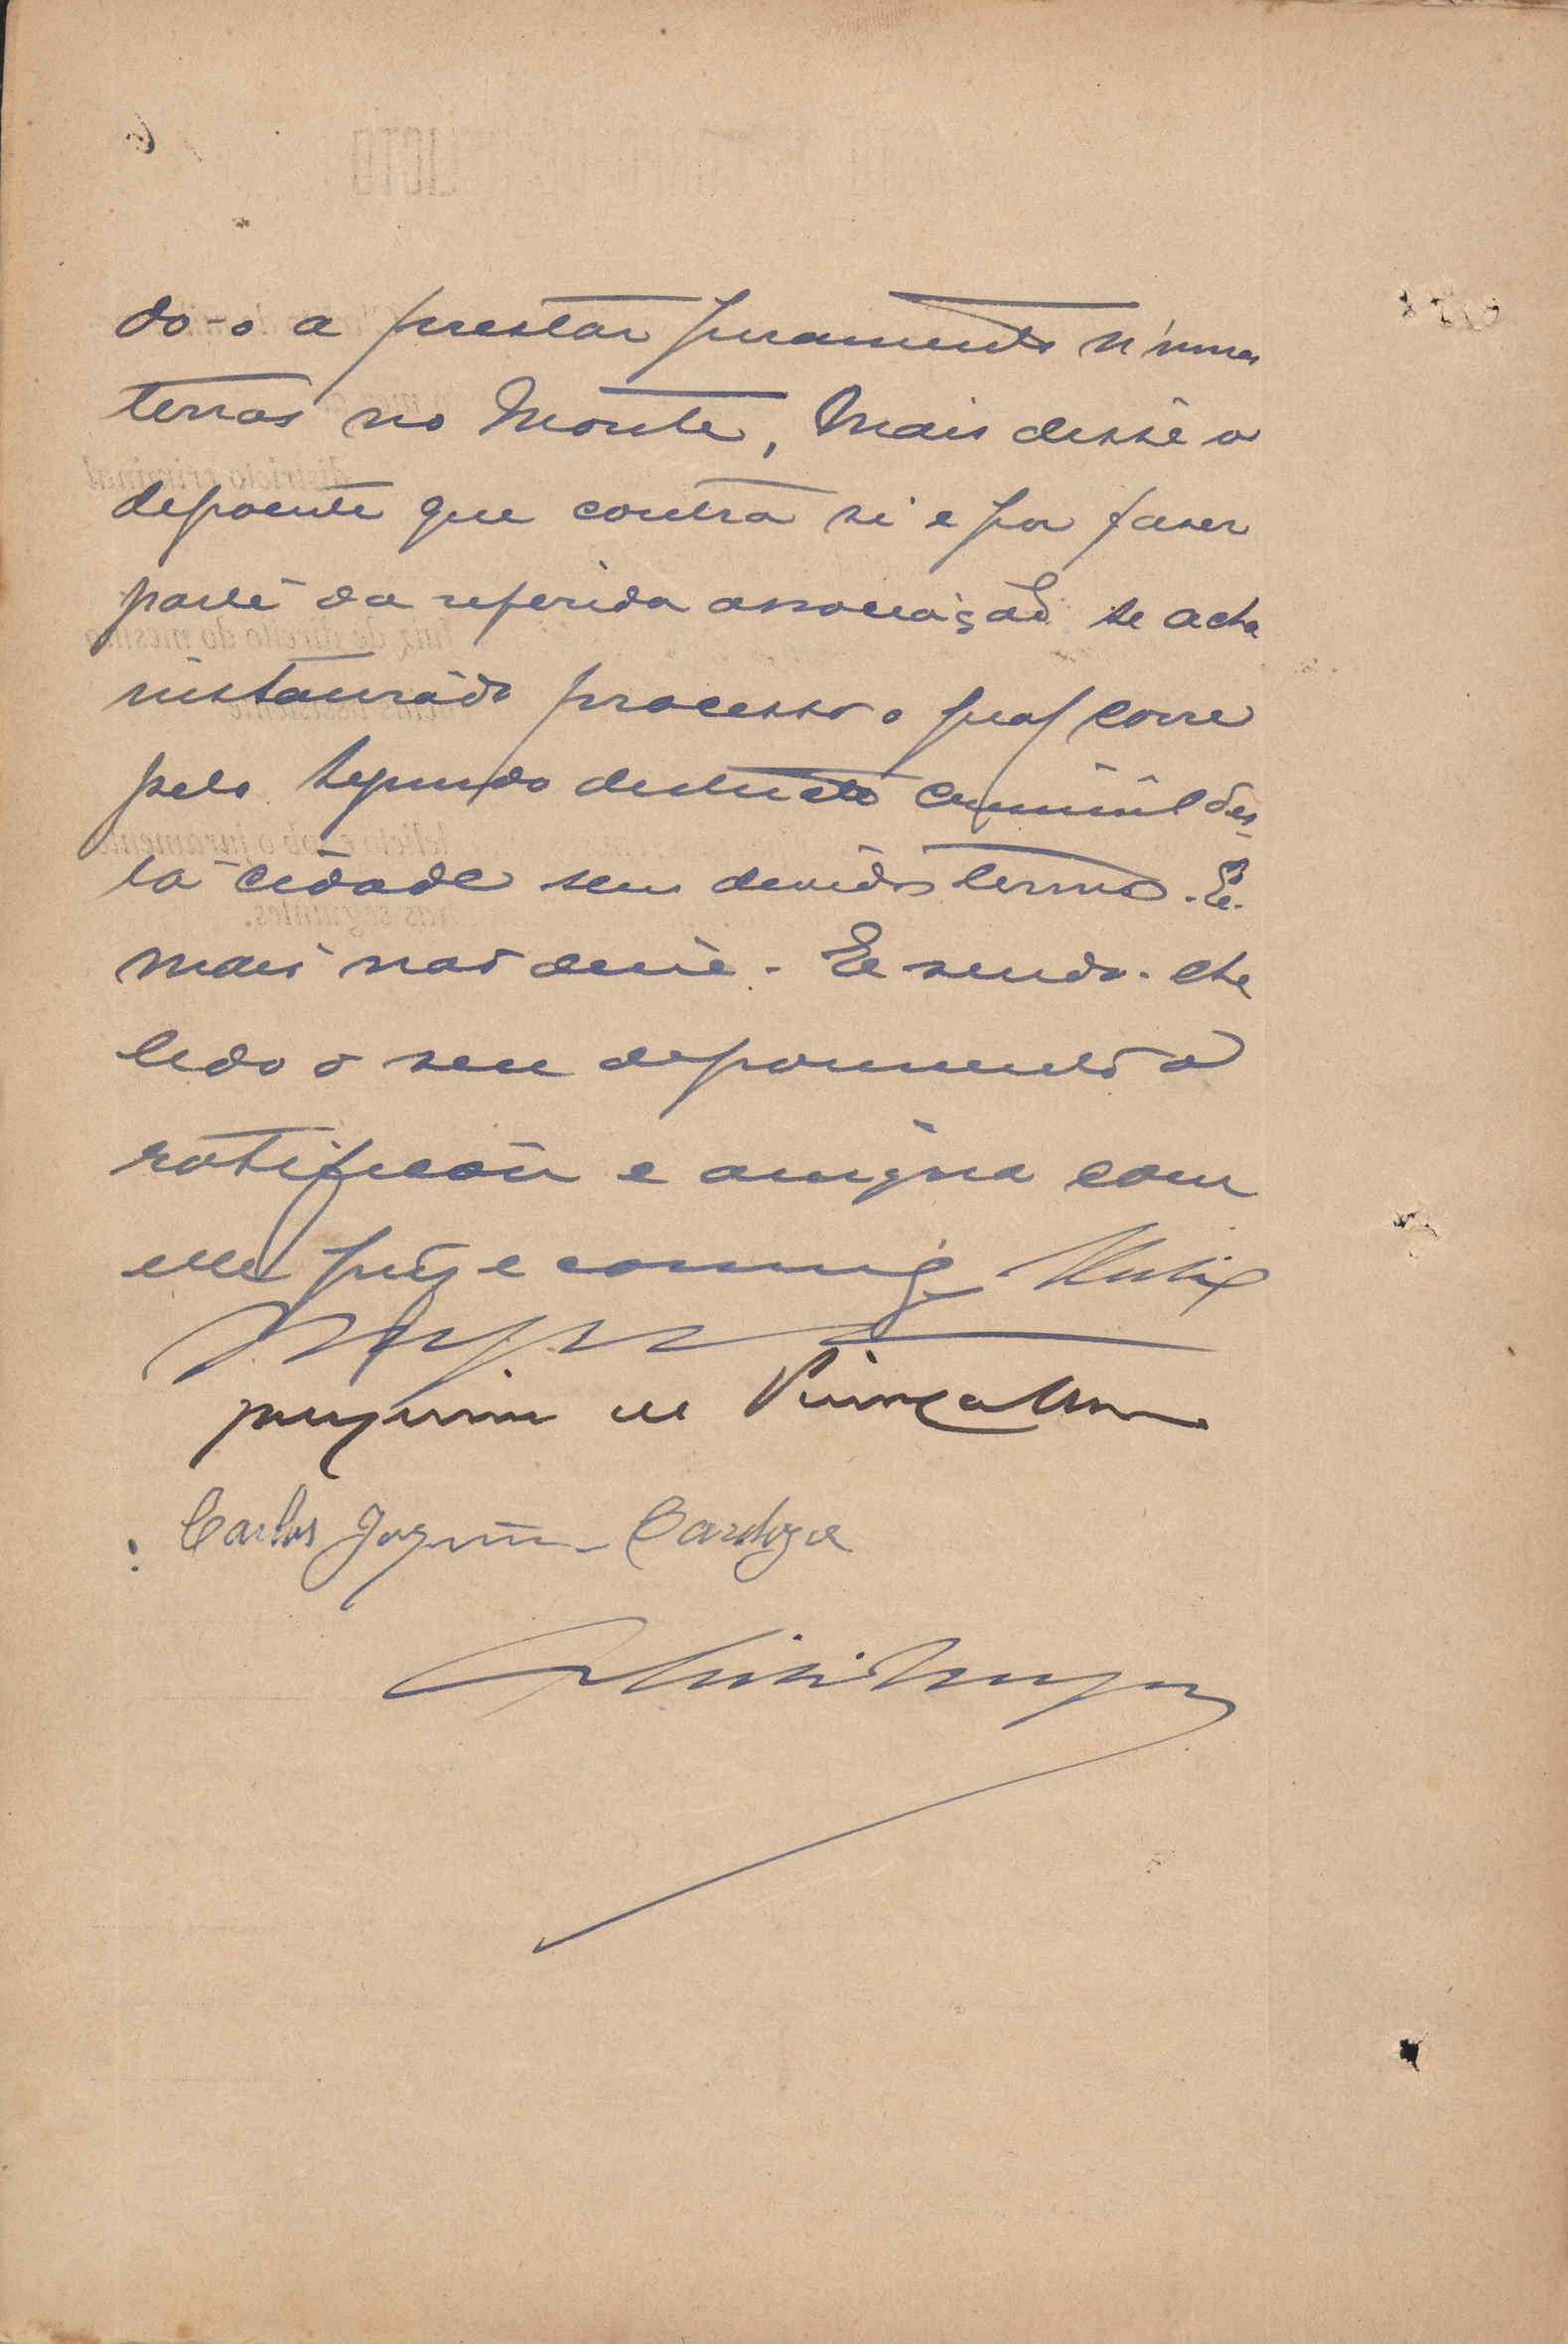 do-o a prestar juramento n'umas
terras no Monte, Mais disse o
depoente que contra si e por faser
parte da referida associação se acha
instaurado processo o qual corre
pelo segundo districto criminal des-
ta cidade seus devidos termos. E
mais não disse. E sendo-lhe
lido o seu depoimento o
ratificou e assigna com
elle juiz e commigo
Carlos Joaquim Cardoza